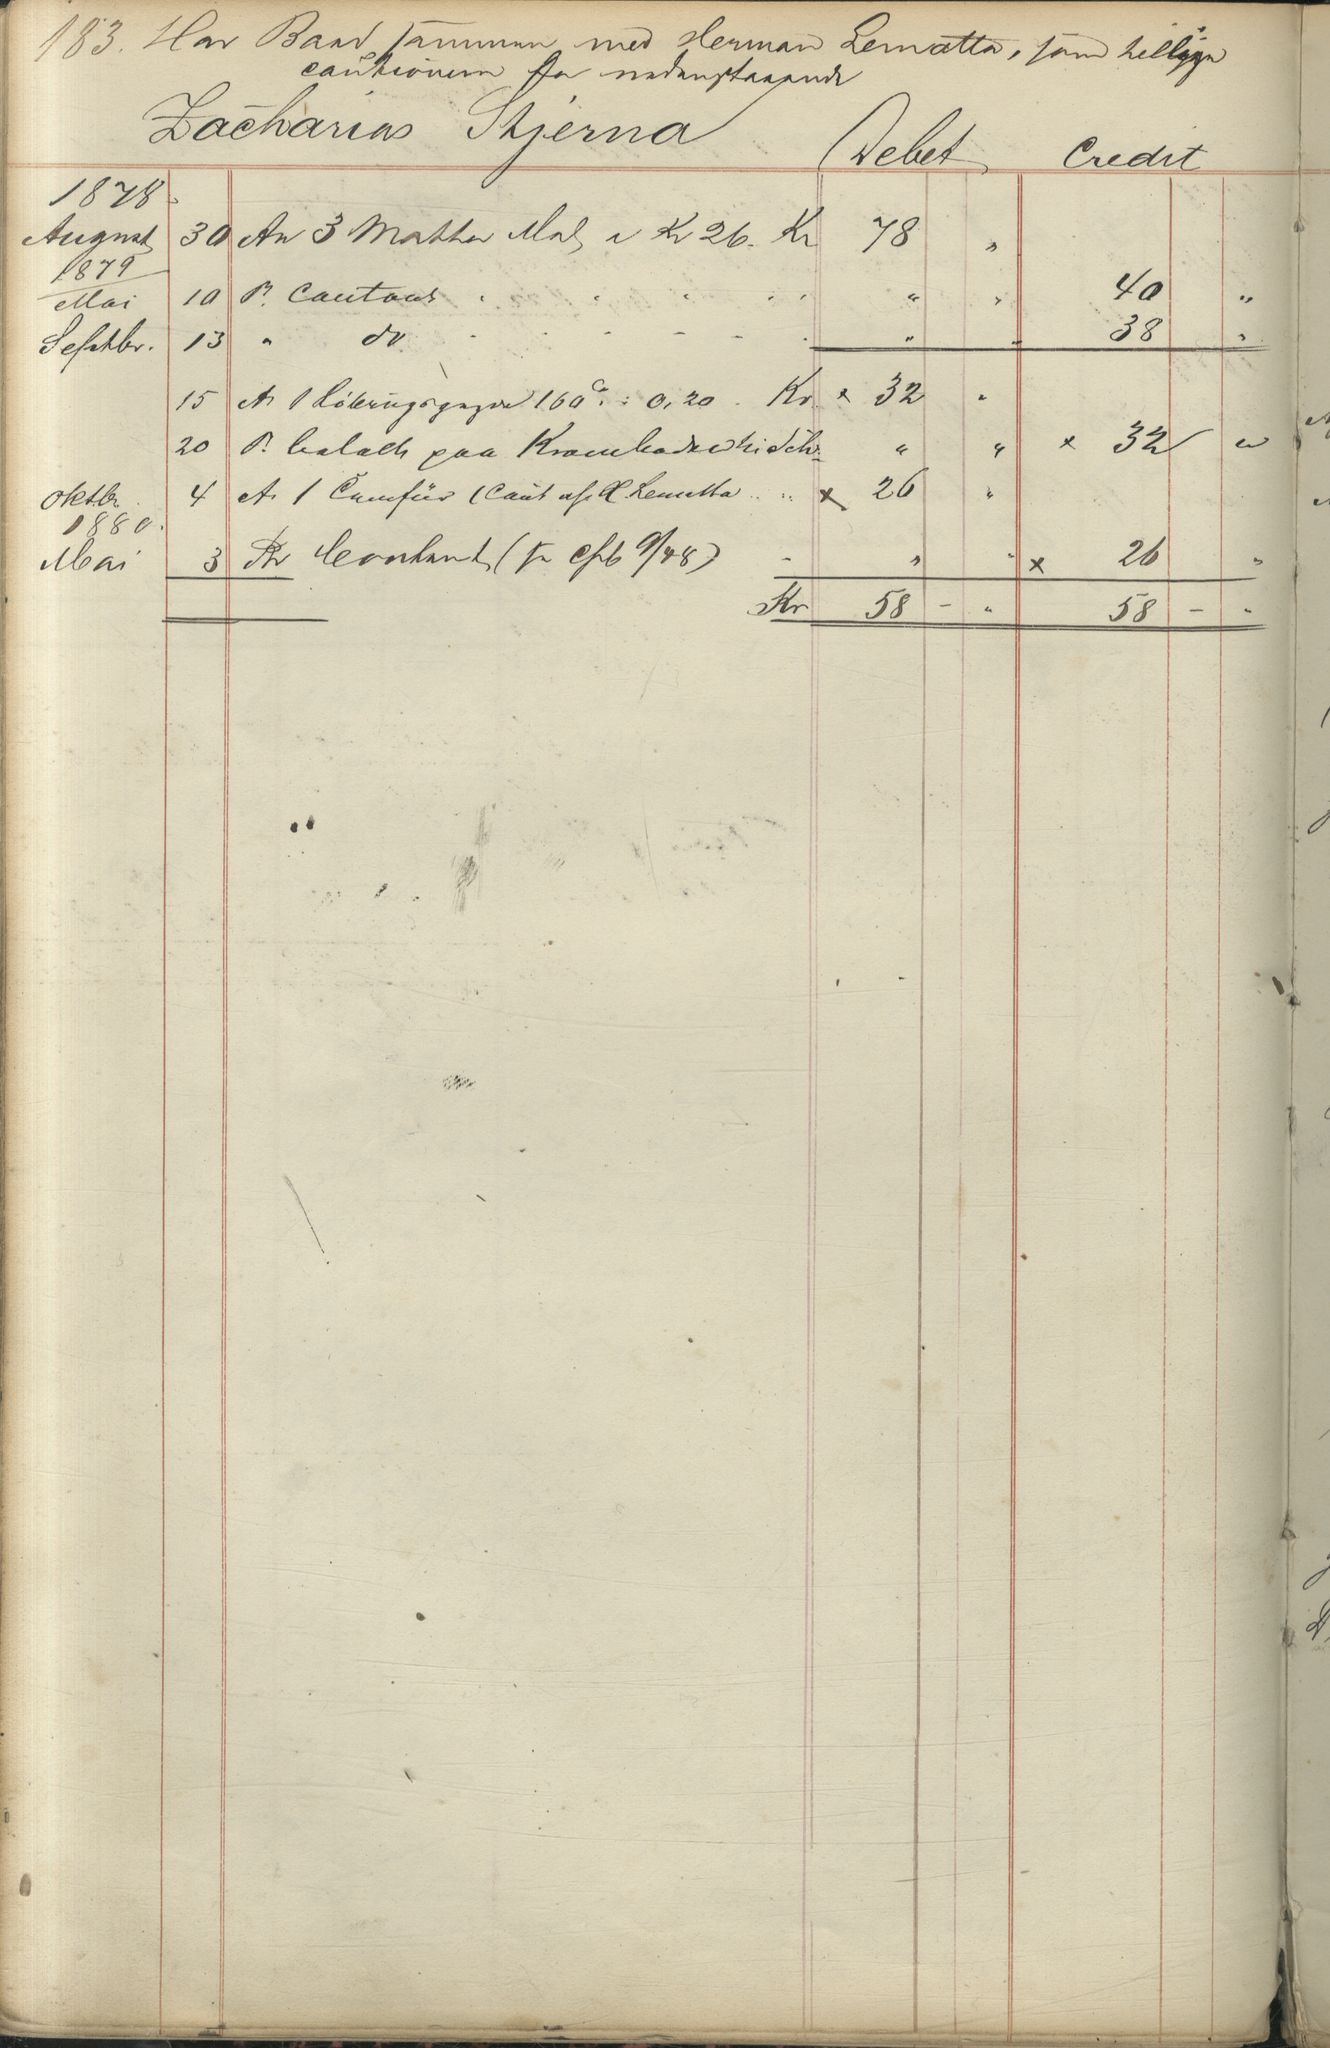 183. Har Baad sammen med Herman Lematta, som tillige
cautionerer for nedenstaaende
Zacharias Stjerna Debet Credit
1878
August 30 An 3 Matter Mel a Kr 26. Kr 78 "
1879
Mai 10 Pr. Contant " " 40 "
Septbr. 13 " do " " 38 "
15 An 1 160 : 0,20. Kr x 32 "
20 Pr. betalt paa Kramboden " " x 32 "
Oktbr. 4 An 1 (Caut af H Lematta x 26 "
1880.
Mai 3 Pr Contant 9/48) " " x 26 "
Kr 58 - " 58 - "